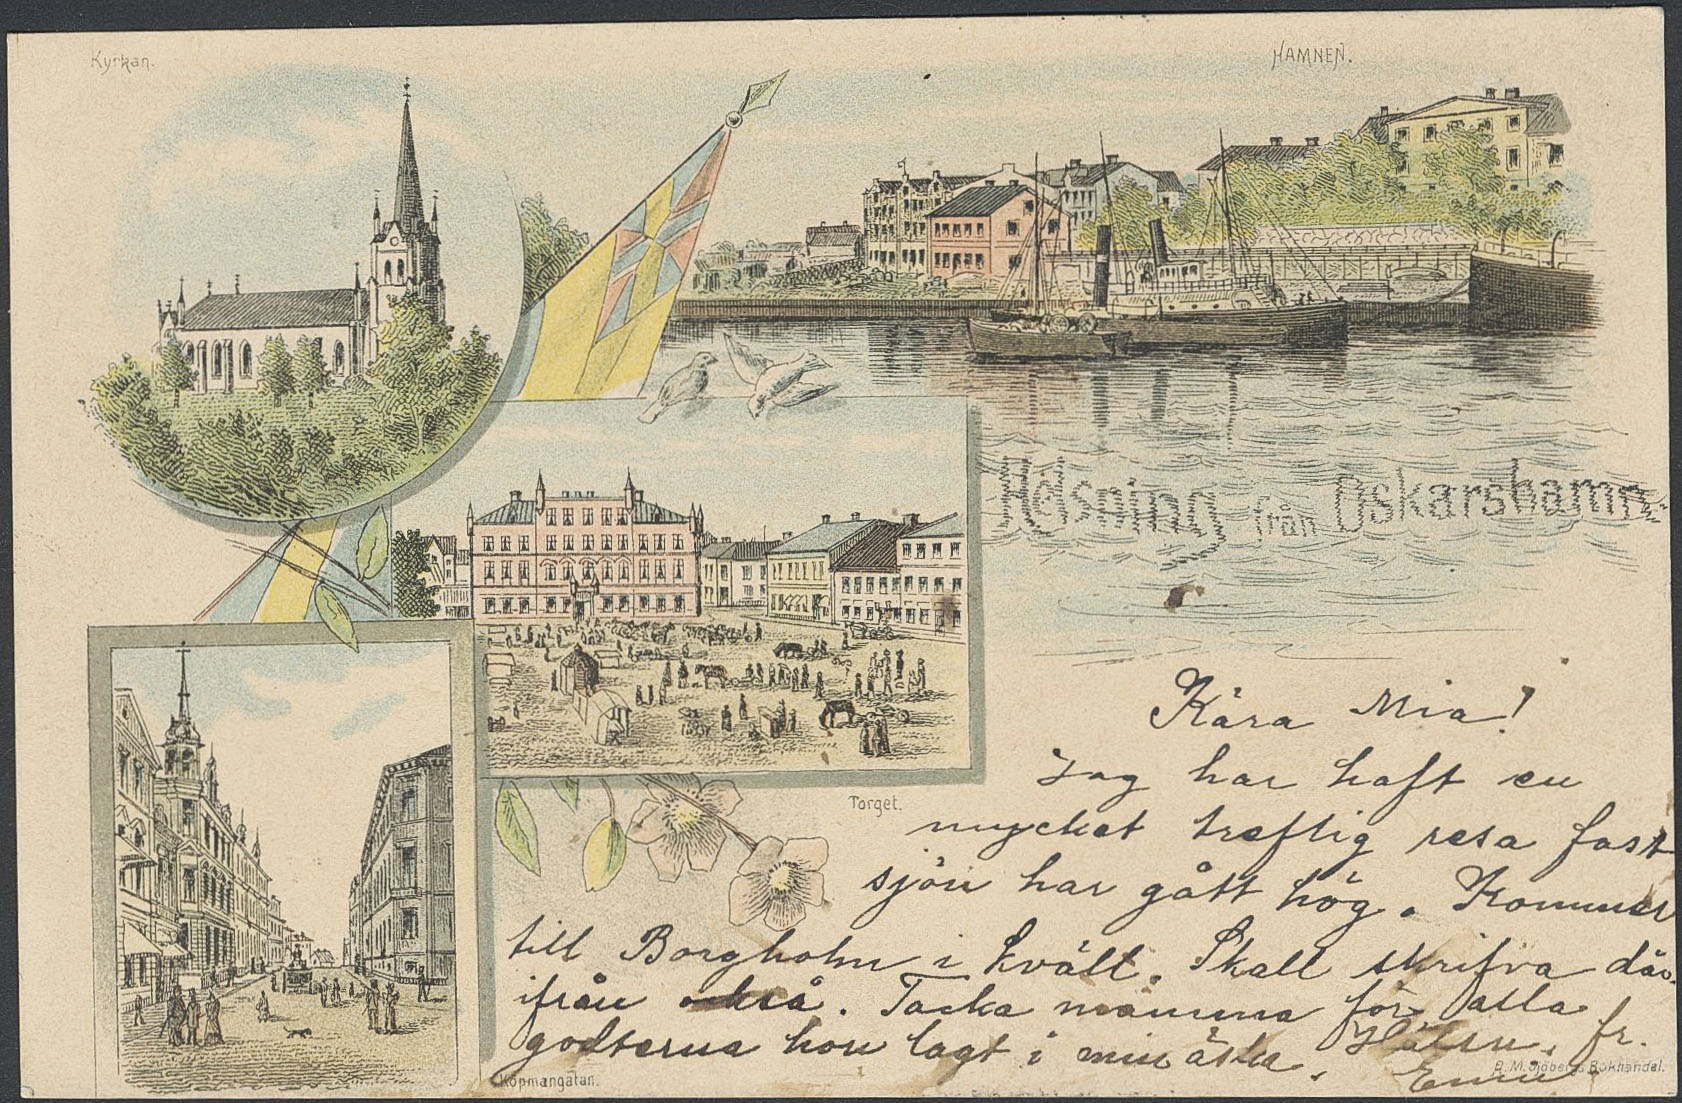 Kyrkan.
HAMNEN.
Hälsning från Oskarshamn
Torget.
Kära Mia!
Jag har haft en
mycket treflig resa fast
sjön har gått hög. Kommer
till Borgholm i kväll. Skall skrifva där-
ifrån också. Tacka mamma för alla
godterna hon lagt i min ask. Hälsn. fr.
Köpmangatan.
O. M. Sjöbergs Bokhandel.